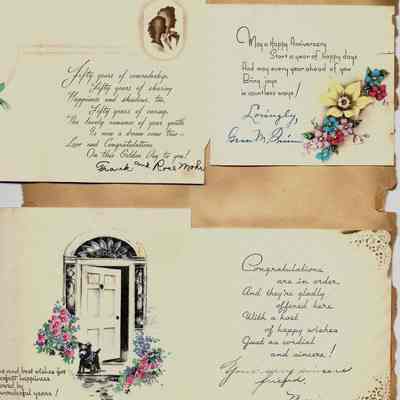 Fifty years of comradeship,
Fifty years of sharing
Happiness and shadow, too,
Fifty years of caring.
The lovely romance of your youth
Is now a dream come true—
Love and Congratulations
On this Golden Day to you!
Frank and Rose Mohr
May a Happy Anniversary
Start a year of happy days
And may every year ahead of you
Bring joys
in countless ways!
Lovingly,
and best wishes for
happiness
wonderful years!
Congratulations
are in order,
And they're gladly
offered here
With a host
of happy wishes
Just as cordial
and sincere!
Your very sincere
friend,